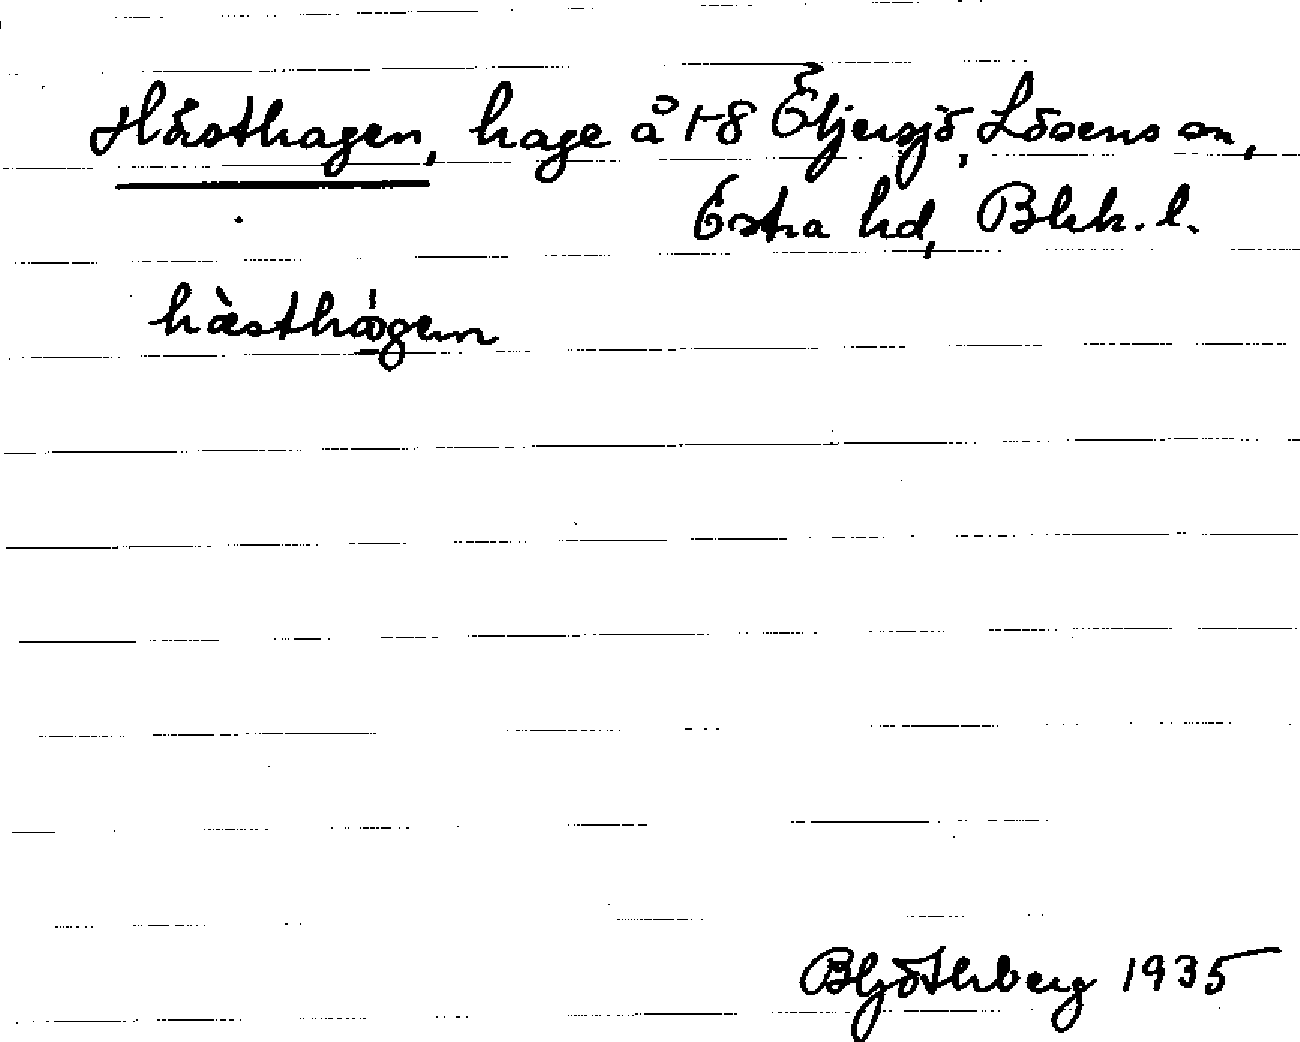 Hästhagen, hage å 1-8 Öljersjö, Lösens sn,
Östra hd, Blek. l.
hàsthágen
BLjöthberg 1935